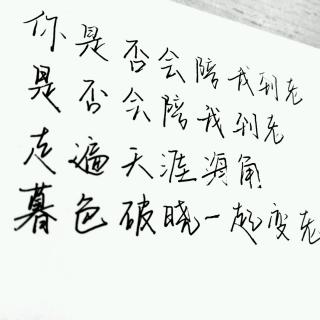 你是否会陪我到老
是否会陪我到老
走遍天涯海角
暮色破晓一起变老